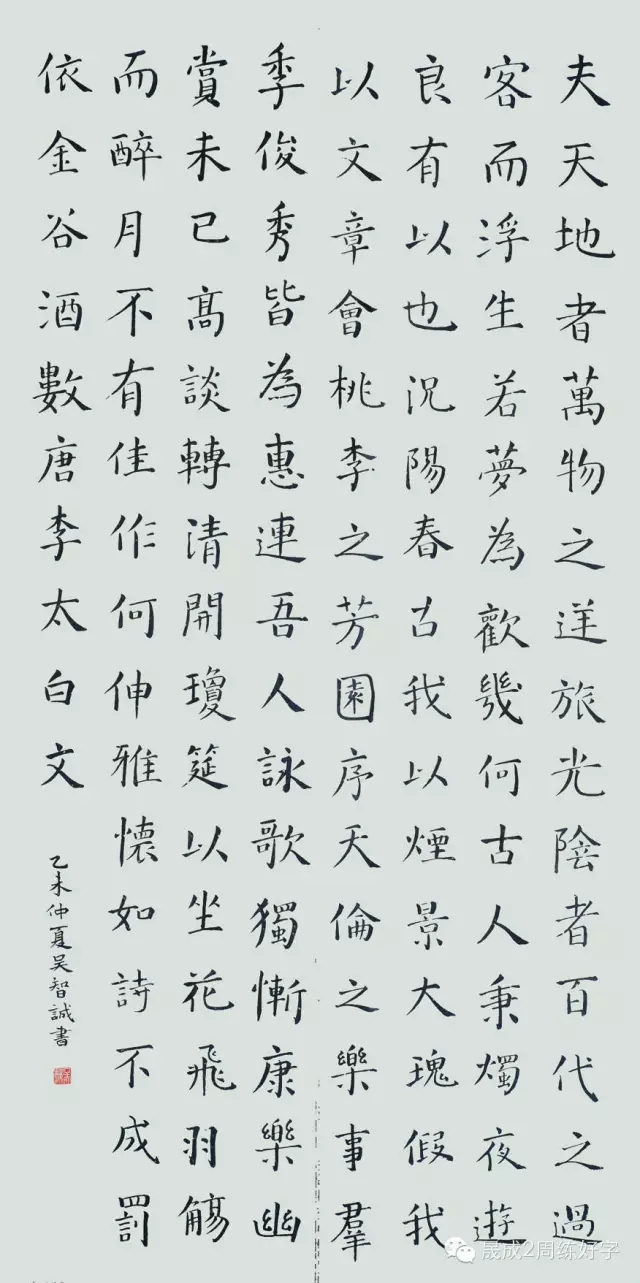 夫天地者萬物之逆旅光陰者百代之過
客而浮生若夢為歡幾何古人秉燭夜遊
良有以也況陽春古我以煙景大瑰假我
以文章會桃李之芳園序天倫之樂事羣
季俊秀皆為惠連吾人詠歌獨慚康樂幽
賞未已高談轉清開瓊筵以坐花飛羽觴
而醉月不有佳作何伸雅懷如詩不成罰
依金谷酒數唐李太白文
乙未仲夏吴智誠書
晟成2周练好字